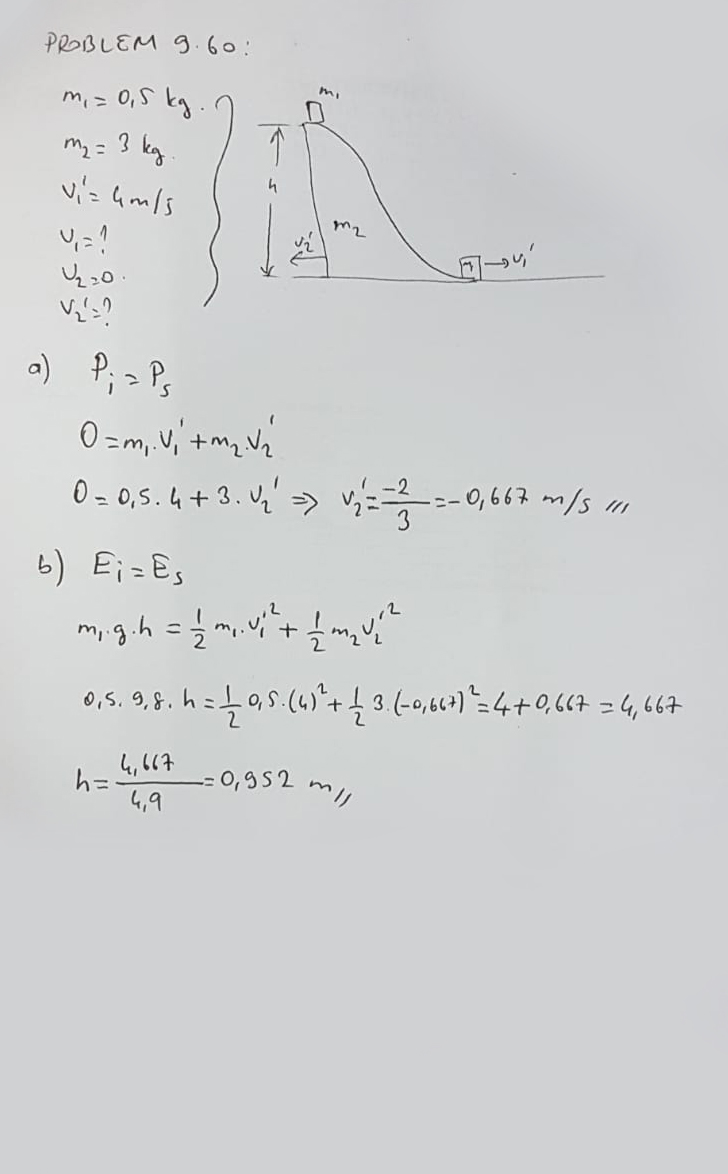 PROBLEM 9.60:
m₁ = 0,5 kg.
m₂ = 3 kg.
v₁' = 4 m/s
v₁ = ?
v₂ = 0.
v₂' = ?
m₁
h
m₂
v₂'
m₁ → v₁'
a) Pᵢ = Pₛ
0 = m₁.v₁' + m₂.v₂'
0 = 0,5.4 + 3.v₂' ⇒ v₂' = -2/3 = -0,667 m/s ///
b) Eᵢ = Eₛ
m₁.g.h = 1/2 m₁.v₁'² + 1/2 m₂v₂'²
0,5. 9,8. h = 1/2 0,5.(4)² + 1/2 3.(-0,667)² = 4 + 0,667 = 4,667
h = 4,667/4,9 = 0,952 m //